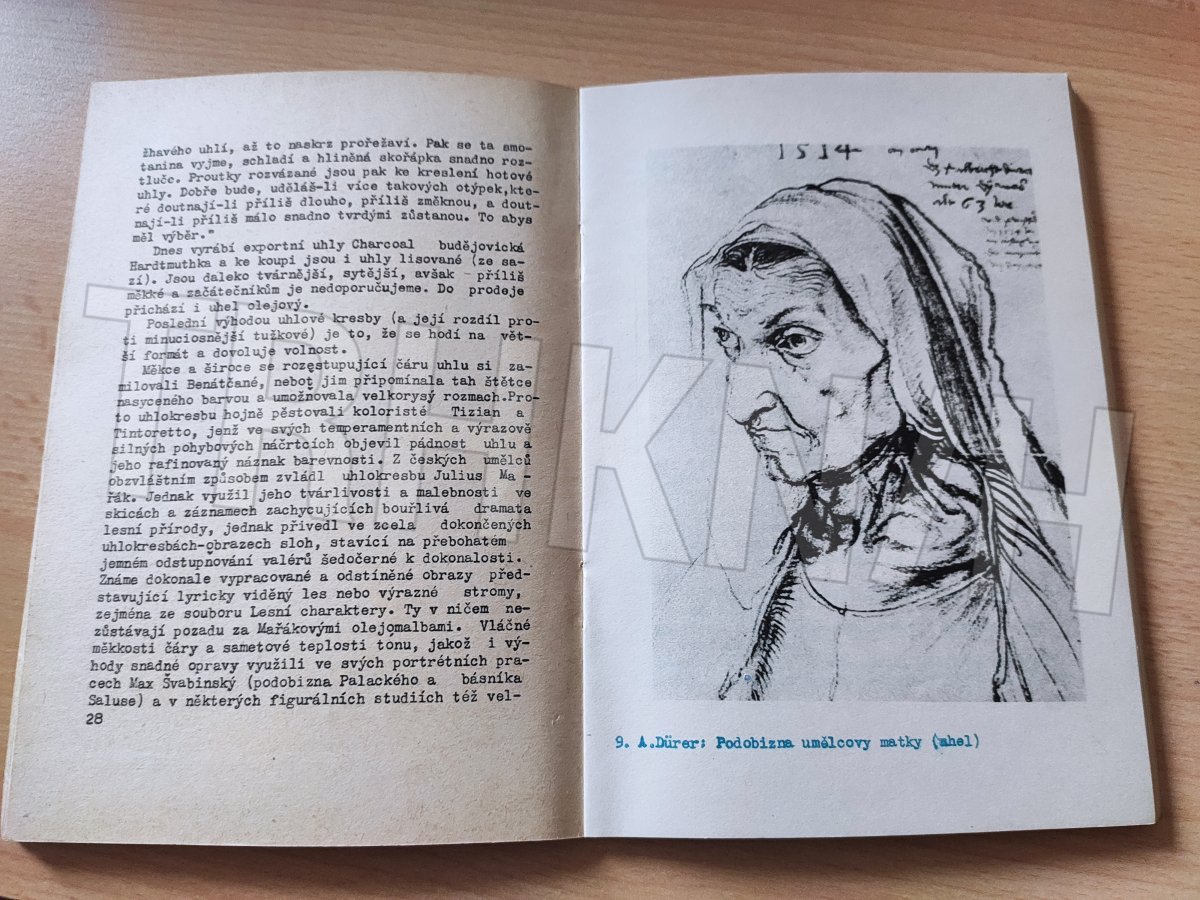 žhavého uhlí, až to naskrz prořežaví. Pak se ta smo-
tanina vyjme, schladí a hliněná skořápka snadno roz-
tluče. Proutky rozvázané jsou pak ke kreslení hotové
uhly. Dobře bude, uděláš-li více takových otýpek,kte-
ré doutnají-li příliš dlouho, příliš změknou, a dout-
nají-li příliš málo snadno tvrdými zůstanou. To abys
měl výběr."
Dnes vyrábí exportní uhly Charcoal budějovická
Hardtmuthka a ke koupi jsou i uhly lisované (ze sa-
zí). Jsou daleko tvárnější, sytější, avšak příliš
měkké a začátečníkům je nedoporučujeme. Do prodeje
přichází i uhel olejový.
Poslední výhodou uhlové kresby (a její rozdíl pro-
ti minuciosnější tužkové) je to, že se hodí na vět-
ší formát a dovoluje volnost.
Měkce a široce se rozestupující čáru uhlu si za-
milovali Benátčané, neboť jim připomínala tah štětce
nasyceného barvou a umožňovala velkorysý rozmach.Pro-
to uhlokresbu hojně pěstovali koloristé Tizian a
Tintoretto, jenž ve svých temperamentních a výrazově
silných pohybových náčrtcích objevil pádnost uhlu a
jeho rafinovaný náznak barevnosti. Z českých umělců
obzvláštním způsobem zvládl uhlokresbu Julius Ma -
řák. Jednak využil jeho tvárlivosti a malebnosti ve
skicách a záznamech zachycujících bouřlivá dramata
lesní přírody, jednak přivedl ve zcela dokončených
uhlokresbách-obrazech sloh, stavící na přebohatém
jemném odstupňování valérů šedočerné k dokonalosti.
Známe dokonale vypracované a odstíněné obrazy před-
stavující lyricky viděný les nebo výrazné stromy,
zejména ze souboru Lesní charaktery. Ty v ničem ne-
zůstávají pozadu za Mařákovými olejomalbami. Vláčné
měkkosti čáry a sametové teplosti tonu, jakož i vý-
hody snadné opravy využili ve svých portrétních pra-
cech Max Švabinský (podobizna Palackého a básníka
Saluse) a v některých figurálních studiích též vel-
28
1514
63
9. A.Dürer: Podobizna umělcovy matky (uhel)
TRHKNIH